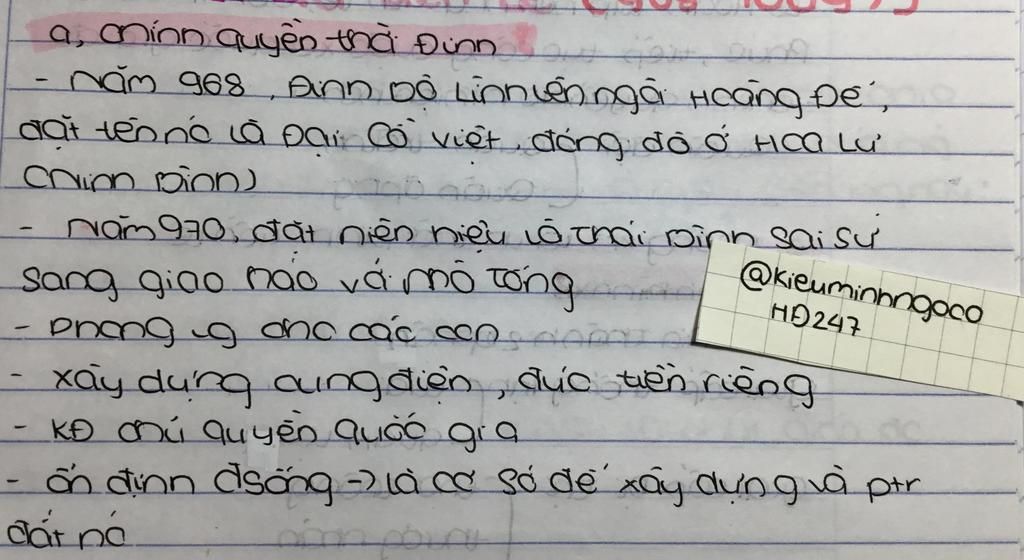 a, chính quyền thời Đinh
- Năm 968, Đinh Bộ Lĩnh lên ngôi Hoàng Đế,
đặt tên nc là Đại Cồ Việt, đóng đô ở Hoa Lư
(Ninh Bình)
- Năm 970, đặt niên hiệu là Thái Bình sai sứ
sang giao hảo với nhà Tống
@kieuminhngoco
HĐ247
- Phong vg cho các con
- xây dựng cung điện, đúc tiền riêng
- KĐ chủ quyền quốc gia
- ổn định đsống -> là cơ sở để xây dựng và ptr
đất nc